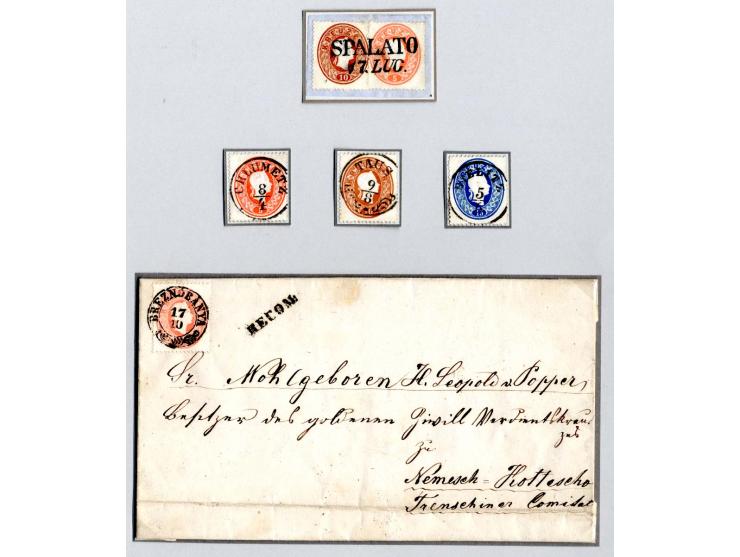 SPALATO
17. LUG.
10
5
CHLUMETZ
8/4
TAUS
9/8
5
15
BREZNOBANYA
17/10
RECOM.
Sr. Wohlgeboren H. Leopold v. Popper,
Besitzer des goldenen Zivill Verdienstkreu-
zes
zu
Nemesch-Hottescho
Trenschiner Comitat